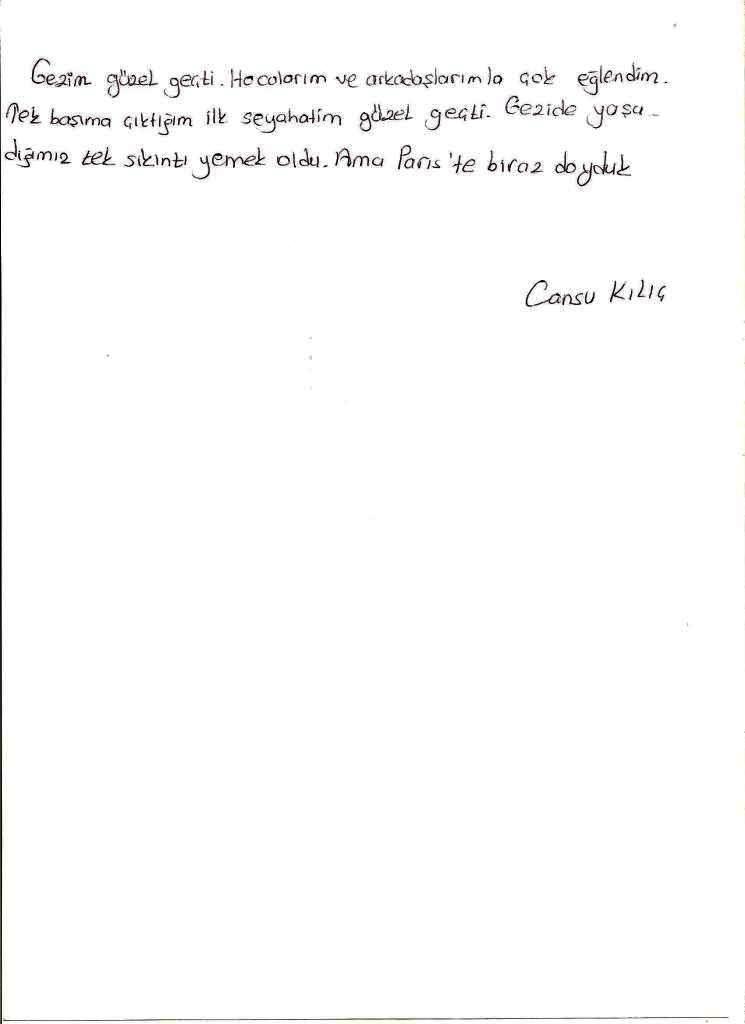 Gezim güzel geçti. Hocalarım ve arkadaşlarımla çok eğlendim.
Tek başıma çıktığım ilk seyahatim güzel geçti. Gezide yaşa-
dığımız tek sıkıntı yemek oldu. Ama Paris'te biraz doyduk
Cansu Kılıç